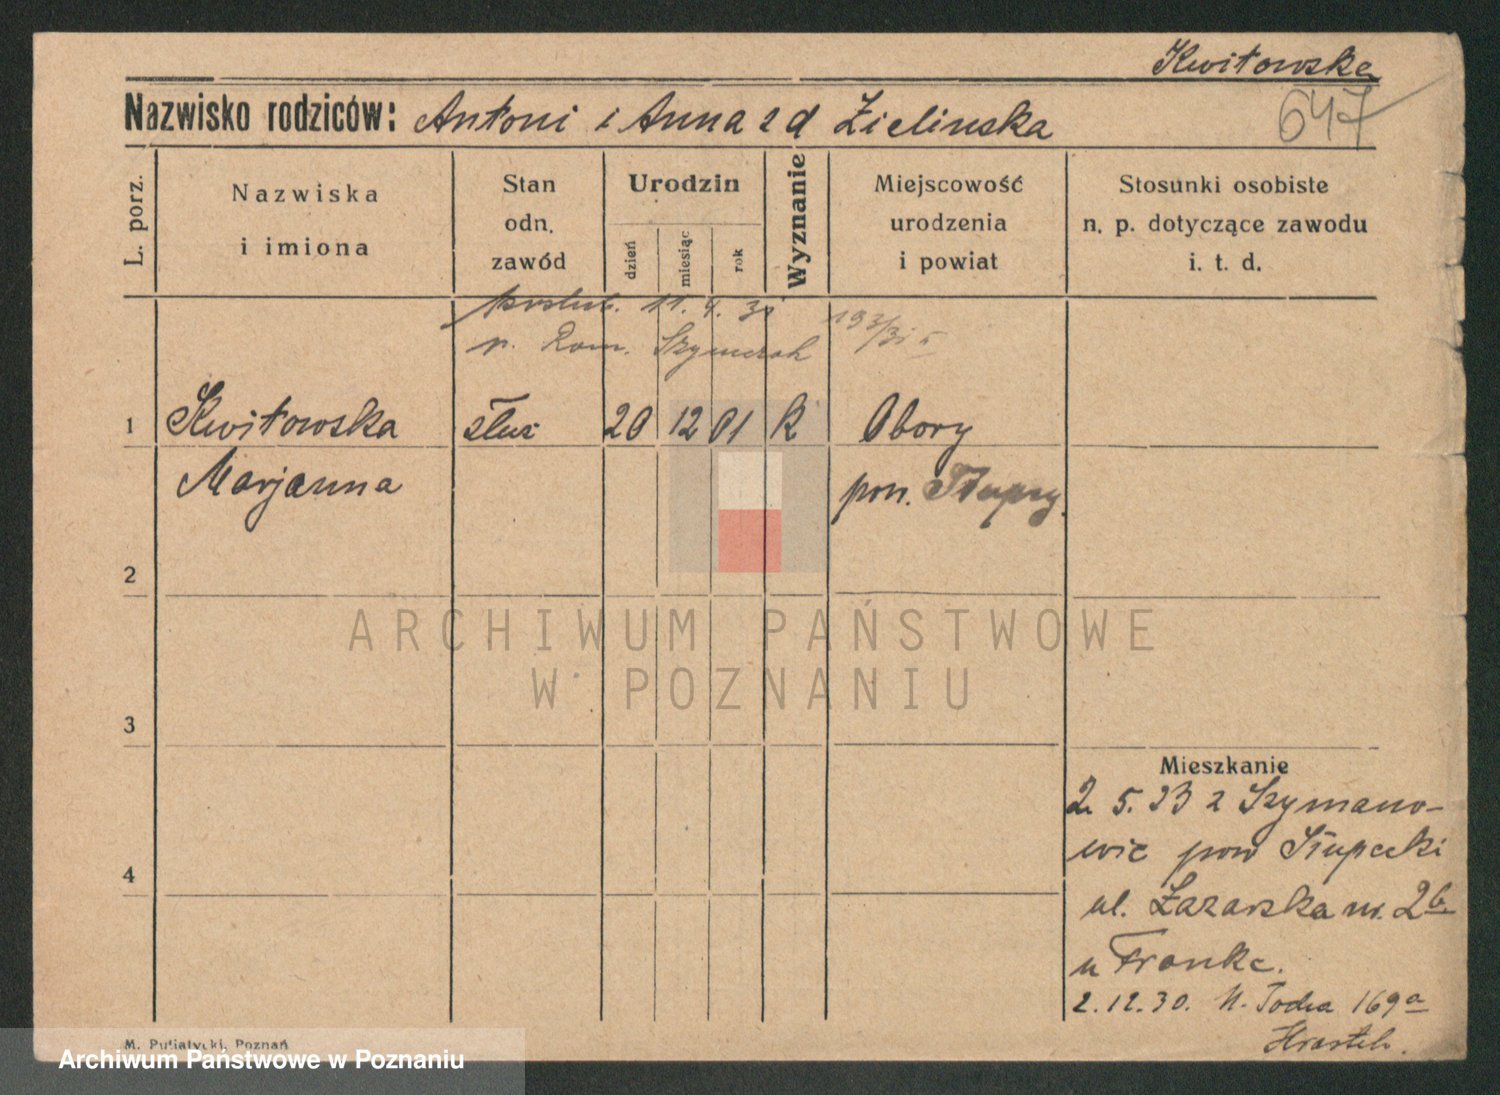 Kwitowska
647
Nazwisko rodziców: Antoni i Anna z d Zielinska
L. porz.
Nazwiska i imiona
Stan odn. zawód
Urodzin
dzień
miesiąc
rok
Wyznanie
Miejscowość urodzenia i powiat
Stosunki osobiste n. p. dotyczące zawodu i. t. d.
11. 4. 31
Szymczak
1 Kwitowska służ 20 12 01 k Obory
Marjanna pow. Słupcy.
2
3
4
Mieszkanie
2. 5. 23 z Szymano-
wic pow Słupecki
ul. Łazarska nr. 2b
u Franke.
2.12.30. 169a
ARCHIWUM PAŃSTWOWE
W POZNANIU
M. Putiatycki, Poznań
Archiwum Państwowe w Poznaniu